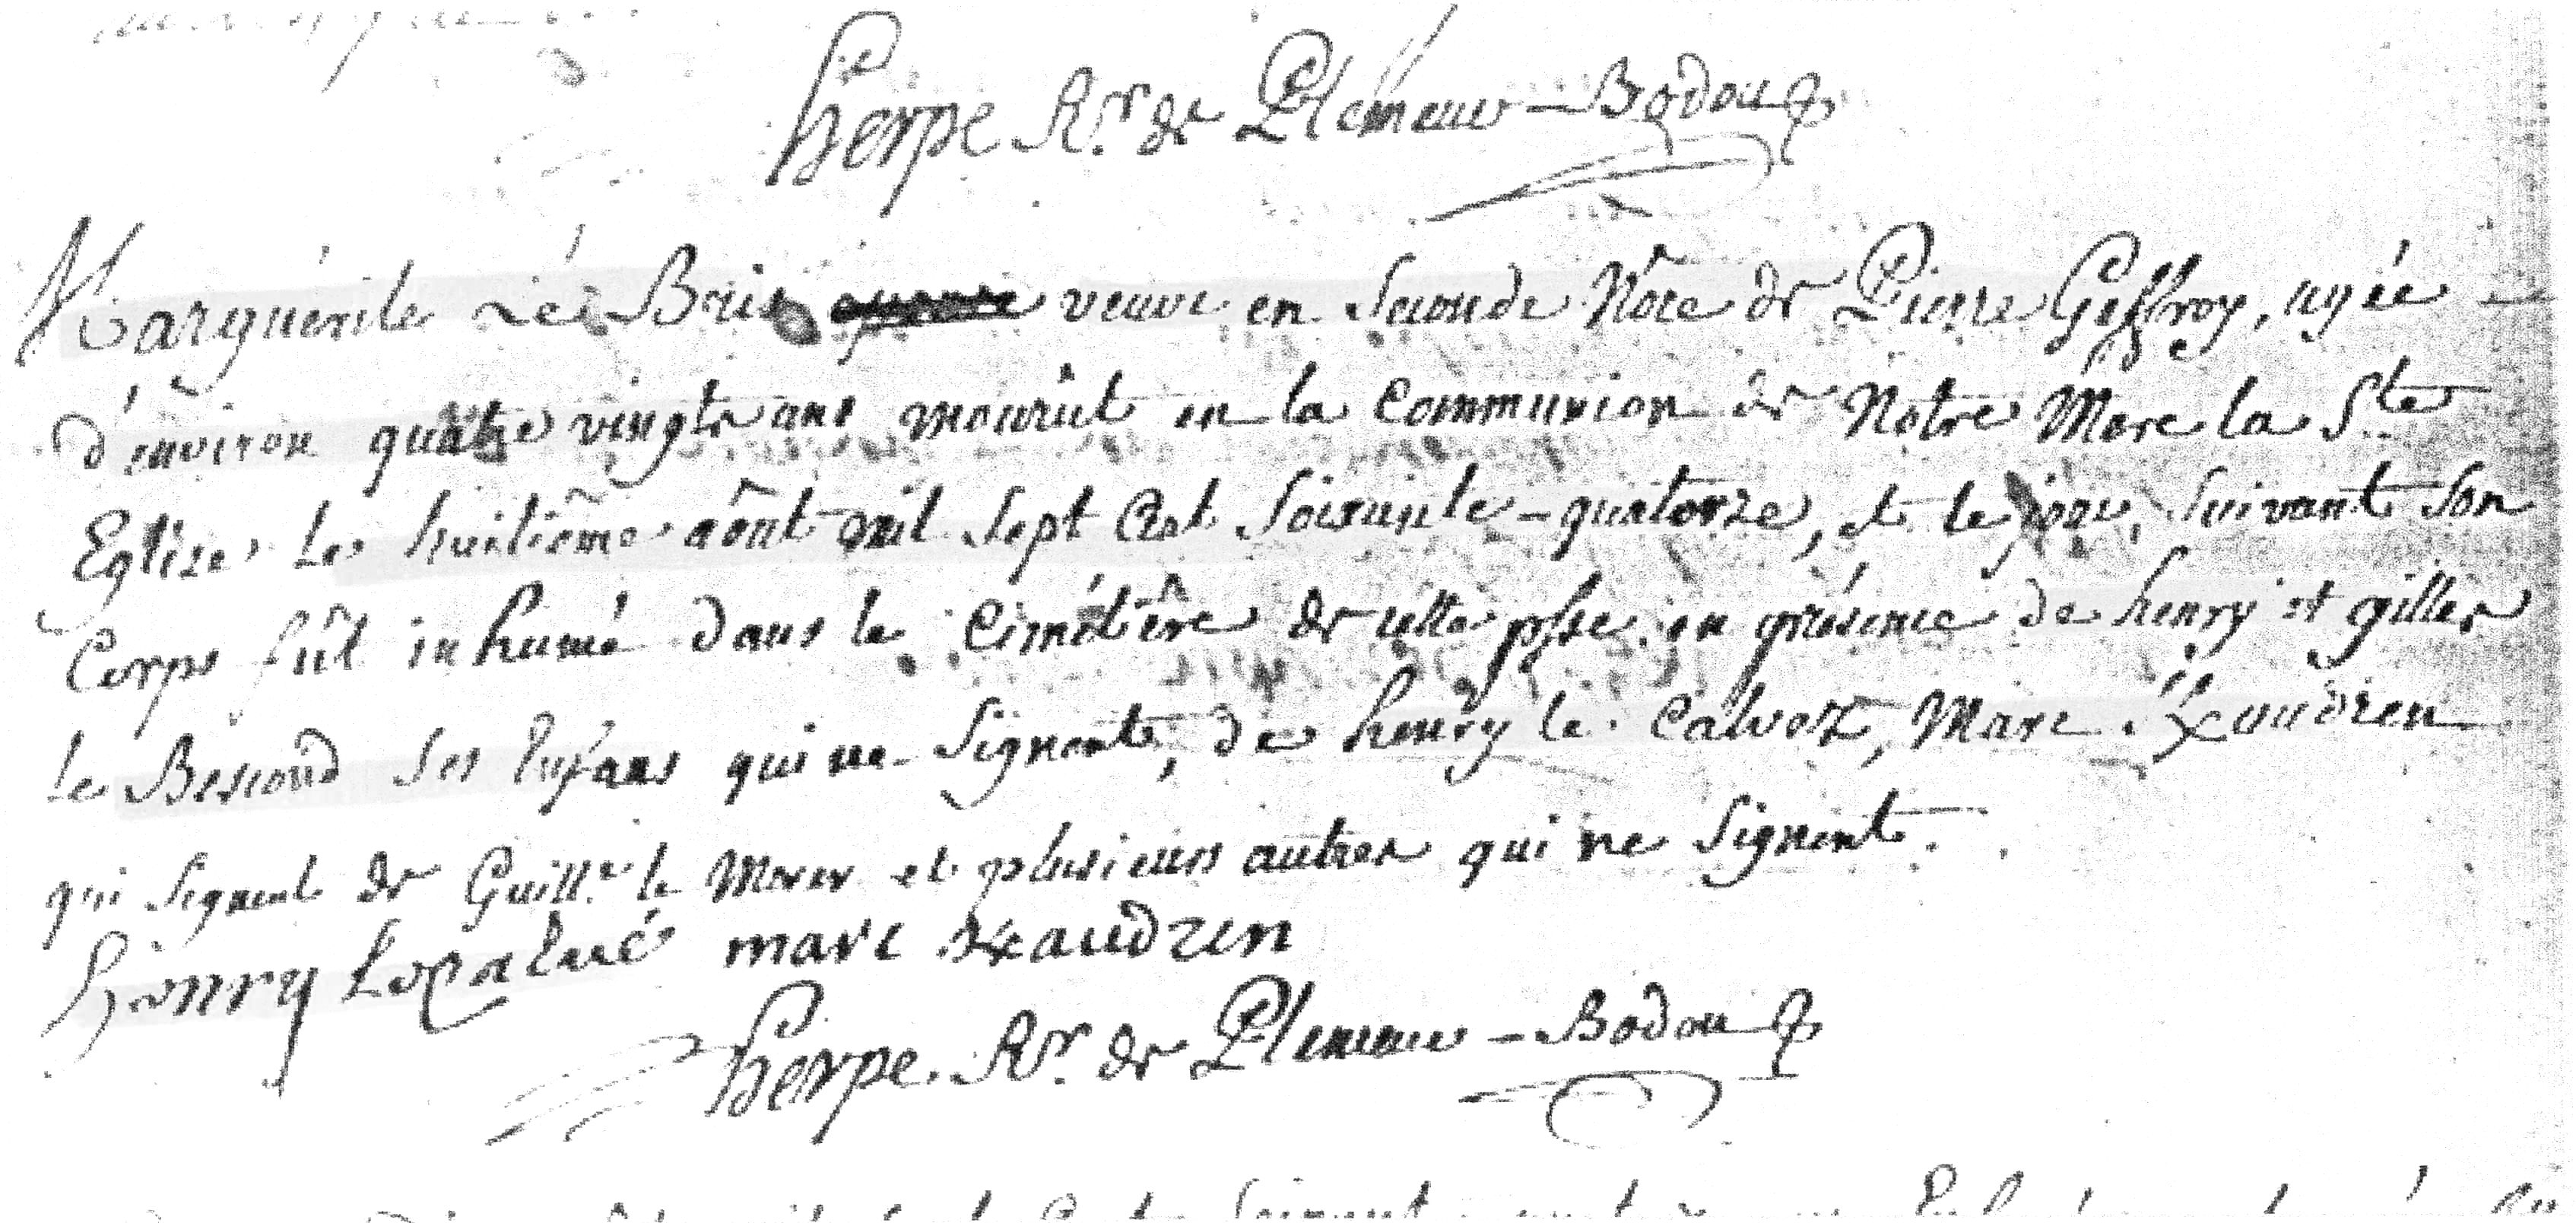 herpe R.r de Plemeur-Bodou
Marguérite Le Bris veuve en seconde Nôce de Pierre Geffroy, agée
d'environ quatre vingts ans mourût en la Communion de Notre Mere la Ste
Eglise le huitiême aôut mil sept Cent soixante-quatorze, et le jour suivant son
Corps fût inhumé dans le Cimétiêre de cette psse en présence de henry et gilles
le Bescond ses Enfans qui ne signent, de henry le Calvez, Marc Kaudren
qui signent de Guill.e le Morer et plusieurs autres qui ne signent.
henry Le Calvé marc Kaudren
herpe. R.r de Plemeur-Bodou